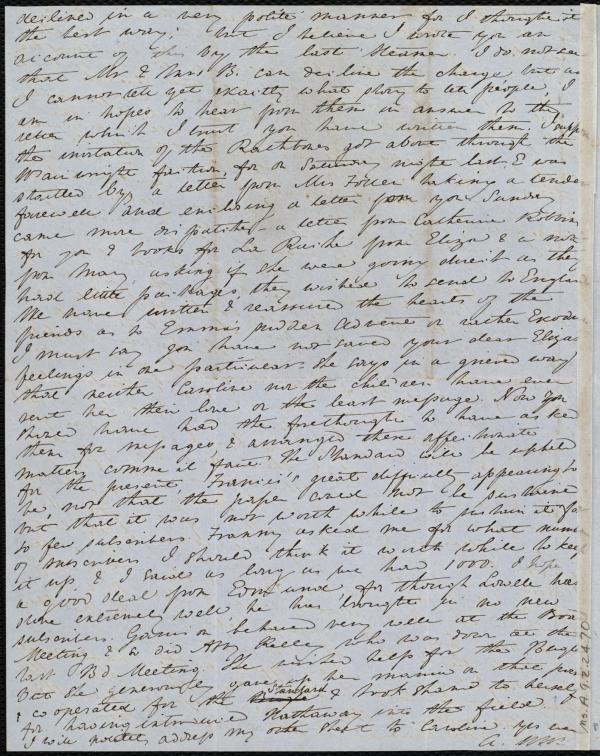 declined in a very polite manner for I thought it
the best way; but I believe I wrote you an
account of this by the last Steamer. I do not see
that Mr & Mrs B. can decline the charge, but as
I cannot get exactly what story to tell people, I
am in hopes to hear from them in answer to the
letter which I trust you have written them. I suppose
the invitation of the Rathbones got about through the
Wainwright faction, for on Saturday night last E was
startled by a letter from Mrs Follen taking a tender
farewell and enclosing a letter from you. Sunday
came more dispatches - a letter from Catherine Robbins
for you & books for La Ruishe from Eliza & a note
from Mary asking if she were going direct as they
had little packages they wished to send to England
We have written & reassured the hearts of the
friends as to Emma's sudden advent or rather Exodus
I must say you have not saved your dear Eliza's
feelings in one particular. She says in a grieved way
that neither Caroline nor the children have ever
sent her their love or the least message. Now you
should have had the forethought to have asked
them for messages, & arranged these affectionate
matters comme il faut. The Standard will be upheld
for the present, Francis's great difficulty appearing to
be, not that the paper could not be sustained
but that it was not worth while to sustain it for
so few subscribers. Franny asked me for what number
of subscribers I should think it worth while to keep
it up, & I said as long as we had 1000. I hope
a good deal from Edmund, for though Lowell has
done extremely well he has brought in no new
subscribers. Garrison behaved very well at the Board
Meeting & so did Abby Kelley, who was down at the
last Bd Meeting. She wished help for the Bugle
but she generously gave up her mania on that point
& co operated for the Standard & took shame to herself
for having introduced Hathaway into the field.
I will politely address my other sheet to Caroline yes in
Ms. A. 9.2.24.70